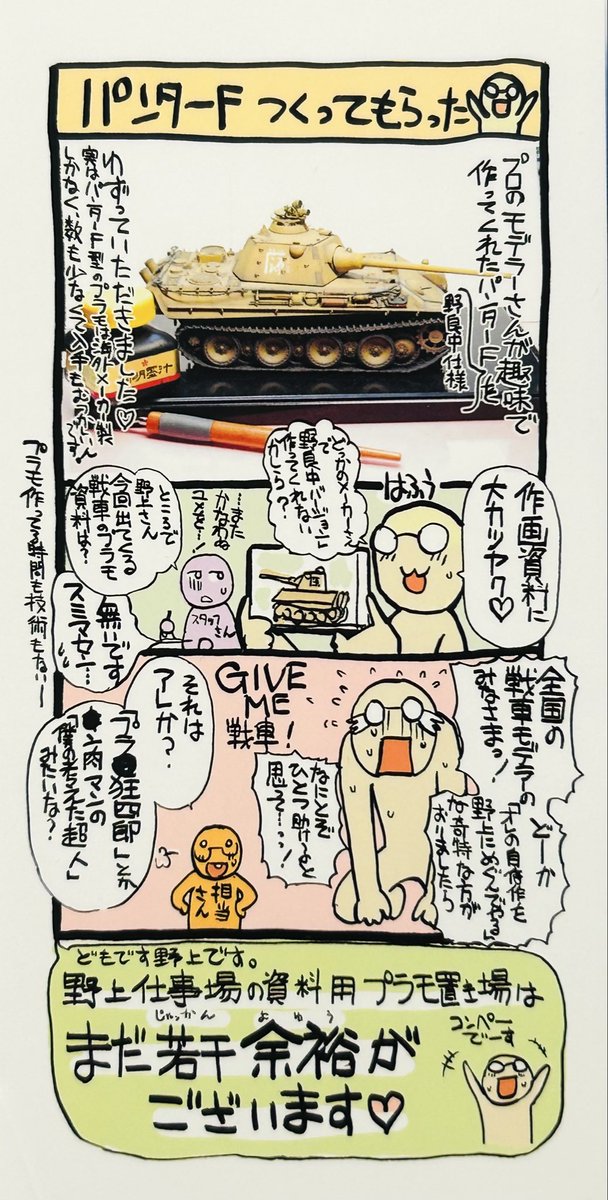 パンターF つくってもらった
プロのモデラーさんが趣味で
作ってくれたパンターFを
野良中仕様
ゆずっていただきました♡
実はパンターF型のプラモは海外メーカー製
しかなく、数も少なくて入手もむつかしいんです!
作画資料に
大カツヤク♡
はふう
どっかのメーカーさんで
野良中バージョン
作ってくれない
かしら?
…また
かなわぬ
ユメを…!
スタッフさん
ところで
野上さん
今回出てくる
戦車のプラモ
資料は?
無いです
スミマセン…
プラモ作ってる時間も技術もないー
全国の
戦車モデラーの
みなさまっ!
どーか
「オレの自信作を
野上にめぐんでやる」
な奇特な方が
おりましたら
なにとぞ
ひとつ助けると
思って…っ!
GIVE
ME
戦車!
それは
アレか?
「プラ●狂四郎」とか
●ン肉マンの
「僕の考えた超人」
みたいな?
担当さん
どもです野上です。
野上仕事場の資料用プラモ置き場は
まだ若干余裕が
じゃっかん
よゆう
ございます♡
コンペー
でーす